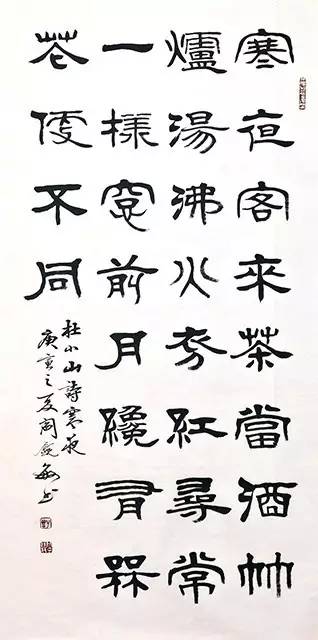 寒夜客來茶當酒竹
爐湯沸火初紅尋常
一樣窓前月纔有槑
花便不同
杜小山詩寒夜
庚寅之夏敏书